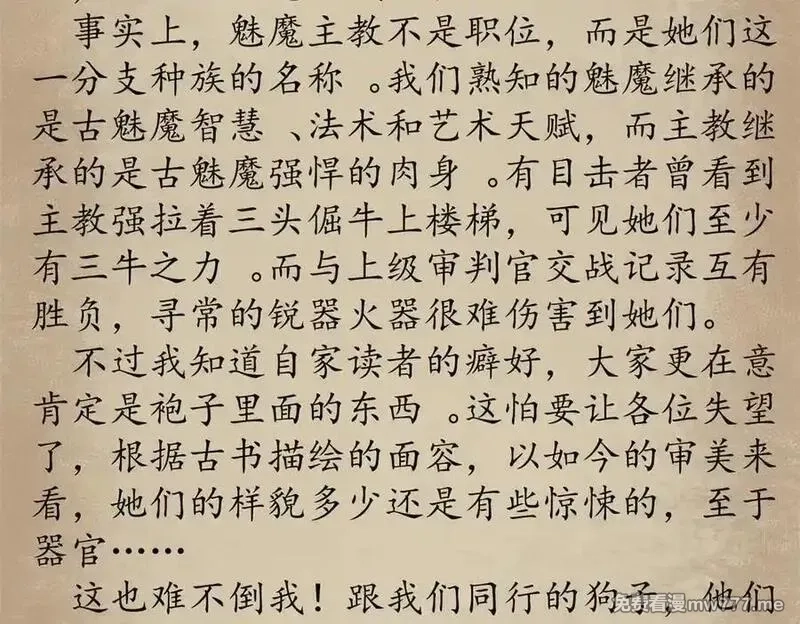 事实上，魅魔主教不是职位，而是她们这
一分支种族的名称 。我们熟知的魅魔继承的
是古魅魔智慧 、法术和艺术天赋，而主教继
承的是古魅魔强悍的肉身 。有目击者曾看到
主教强拉着三头倔牛上楼梯，可见她们至少
有三牛之力 。而与上级审判官交战记录互有
胜负，寻常的锐器火器很难伤害到她们。
不过我知道自家读者的癖好，大家更在意
肯定是袍子里面的东西 。这怕要让各位失望
了，根据古书描绘的面容，以如今的审美来
看，她们的样貌多少还是有些惊悚的，至于
器官……
这也难不倒我！跟我们同行的狗子，他们
免费看漫mw777.me